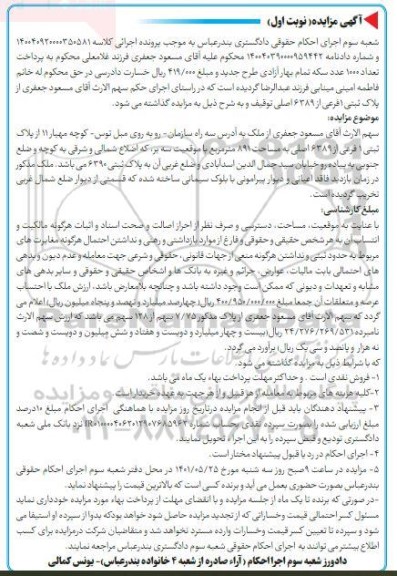 آگهی مزایده( نوبت اول)
شعبه سوم اجرای احکام حقوقی دادگستری بندرعباس به موجب پرونده اجرائی کلاسه ۱۴۰۰۴۰۹۲۰۰۰۰۳۵۰۵۸۱
و شماره دادنامه ۱۴۰۰۴۰۳۹۰۰۰۰۹۵۹۴۴۲ محکوم علیه آقای مسعود جعفری فرزند غلامعلی محکوم به پرداخت
تعداد ۱۰۰۰ عدد سکه تمام بهار آزادی طرح جدید و مبلغ ۴۱۹/۰۰۰ ریال خسارت دادرسی در حق محکوم له خانم
فاطمه امینی مینابی فرزند عبدالرضا گردیده است که در راستای اجرای حکم سهم الارث آقای مسعود جعفری از
پلاک ثبتی ۱فرعی از ۶۳۸۹ اصلی توقیف و به شرح ذیل به مزایده گذاشته می شود.
موضوع مزایده:
سهم الارث آقای مسعود جعفری از ملک به آدرس سه راه سازمان - رو به روی مبل توس- کوچه مهیار ۱۱ از پلاک
ثبتی ۱ فرعی از ۶۳۸۹ اصلی به مساحت ۸۹۱ مترمربع با موقعیت سه بر، که اضلاع شمالی و شرقی به کوچه و ضلع
جنوبی به پیاده رو خیابان سید جمال الدین اسدآبادی و ضلع غربی آن به پلاک ثبتی ۶۳۹۰ می باشد. ملک مذکور
در زمان بازدید فاقد اعیانی و دیوار پیرامونی با بلوک سیمانی ساخته شده که قسمتی از دیوار ضلع شمال غربی
تخریب گردیده است.
مبلغ کارشناسی:
با عنایت به موقعیت، مساحت، دسترسی و صرف نظر از احراز اصالت و صحت اسناد و اثبات هرگونه مالکیت و
انتساب آن به هر شخص حقیقی و حقوقی و فارغ از موارد بازداشتی و رهنی و نداشتن احتمال هرگونه مغایرت های
مربوط به حدود ثبتی و نداشتن هرگونه منعی از جهات قانونی، حقوقی و شرعی جهت معامله و عدم دیون و بدهی
های احتمالی بابت مالیات، عوارض، جرائم و غیره به بانک ها و اشخاص حقیقی و حقوقی و سایر بدهی های
مشابه و تعهدات و دیونی که ممکن است وجود داشته باشد و چنانچه بلامعارض باشد، ارزش ملک با احتساب
عرصه و متعلقات آن جمعا مبلغ ۴۰۰/۹۵۰/۰۰۰/۰۰۰ ریال( چهارصد میلیارد و نهصد و پنجاه میلیون ریال) اعلام می
گردد که سهم الارث آقای مسعود جعفری از پلاک مذکور ۷/۷۵ سهم از ۱۲۸ سهم می باشد که ارزش سهم الارث
نامبرده ۲۴/۲۷۶/۲۶۹/۵۳۱ ریال (بیست و چهار میلیارد و دویست و هفتاد و شش میلیون و دویست و شصت و
نه هزار و پانصد و سی یک ریال) برآورد می گردد.
که با شرایط ذیل به مزایده گذاشته می شود.
۱- فروش نقدی است . و حداکثر مهلت پرداخت بهاء یک ماه می باشد.
۲-کلیه هزینه های مربوط به معامله از هر قبیل و از هر جهت به عهده خریدار است.
۳- پیشنهاد دهندگان باید قبل از انجام مزایده در تاریخ روز مزایده با هماهنگی اجرای احکام مبلغ ۱۰درصد
مبلغ ارزیابی شده را بصورت سپرده نقدی بحساب شماره نزد بانک ملی شعبه
دادگستری تودیع و فیش سپرده را به این اجراء تحویل نمایند.
۴- اجرای احکام در رد یا قبول پیشنهاد مختار است.
۵- مزایده در ساعت ۹صبح روز سه شنبه مورخ ۱۴۰۱/۰۵/۲۵ در محل دفتر شعبه سوم اجرای احکام حقوقی
بندرعباس بصورت حضوری بعمل می آید و برنده کسی است که بالاترین قیمت را پیشنهاد نماید.
-در صورتی که برنده تا یک ماه از جلسه مزایده و با انقضای مهلت از پرداخت بهاء مورد مزایده خودداری نماید
مسئول کسر احتمالی قیمت وخساراتی که از تجدید مزایده حاصل شود خواهد بودکه بدوا از سپرده او استیفا می
شود و سپرده تا تعیین کسر قیمت وخسارات وارده مسترد نخواهد شد و متقاضیان شرکت درمزایده برای کسب
اطلاع بیشتر می توانند به اجرای احکام حقوقی شعبه سوم دادگستری بندرعباس مراجعه نمایند.
دادورز شعبه سوم اجرا احکام ( آراء صادره از شعبه ۴ خانواده بندرعباس)- یونس کمالی